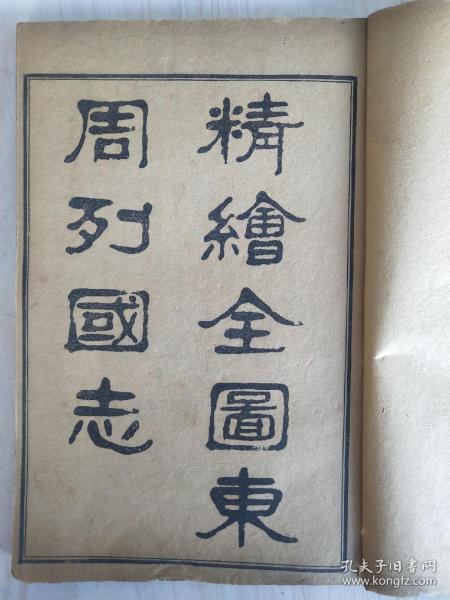 精繪全圖東
周列國志
孔夫子旧书网
www.kongfz.com